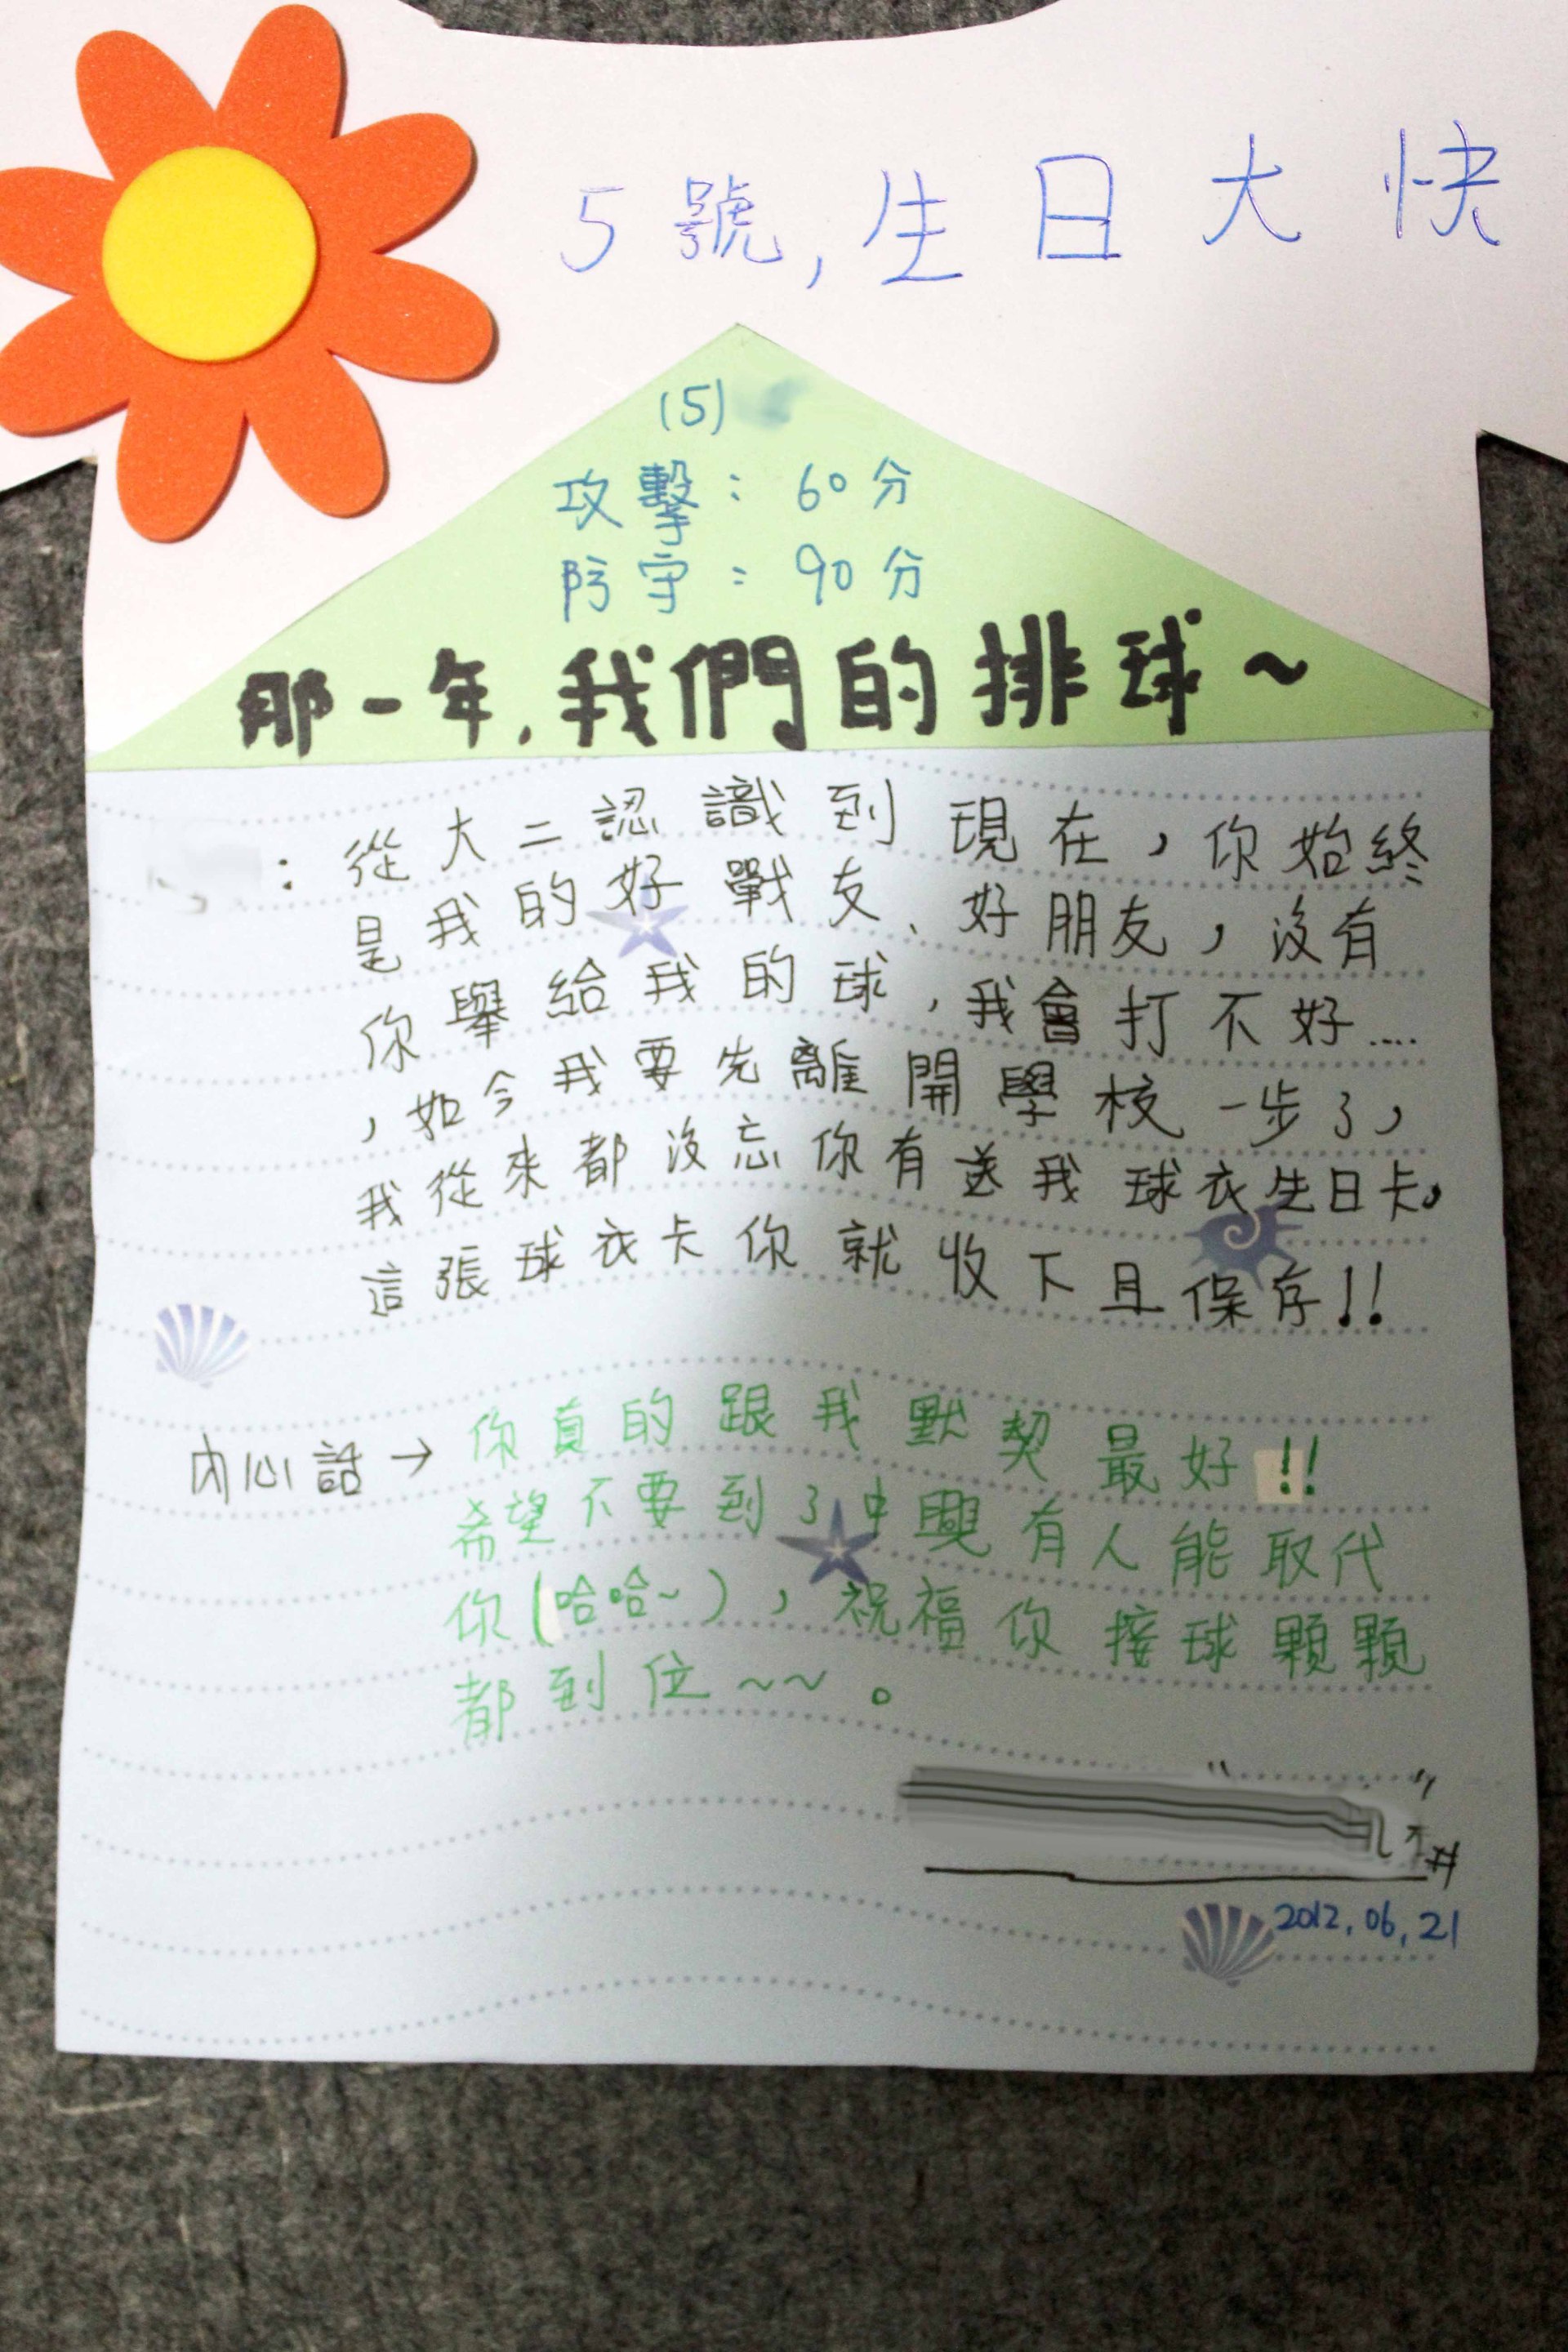 5號,生日大快
(5)
攻擊：60分
防守：90分
那一年,我們的排球~
：從大二認識到現在，你始終
是我的好戰友、好朋友，沒有
你舉給我的球，我會打不好....
，如今我要先離開學校一步了，
我從來都沒忘你有送我球衣生日卡，
這張球衣卡你就收下且保存!!
內心話→你真的跟我默契最好!!
希望不要到了中興有人能取代
你(哈哈~)，祝福你接球顆顆
都到位~~。
2012.06.21